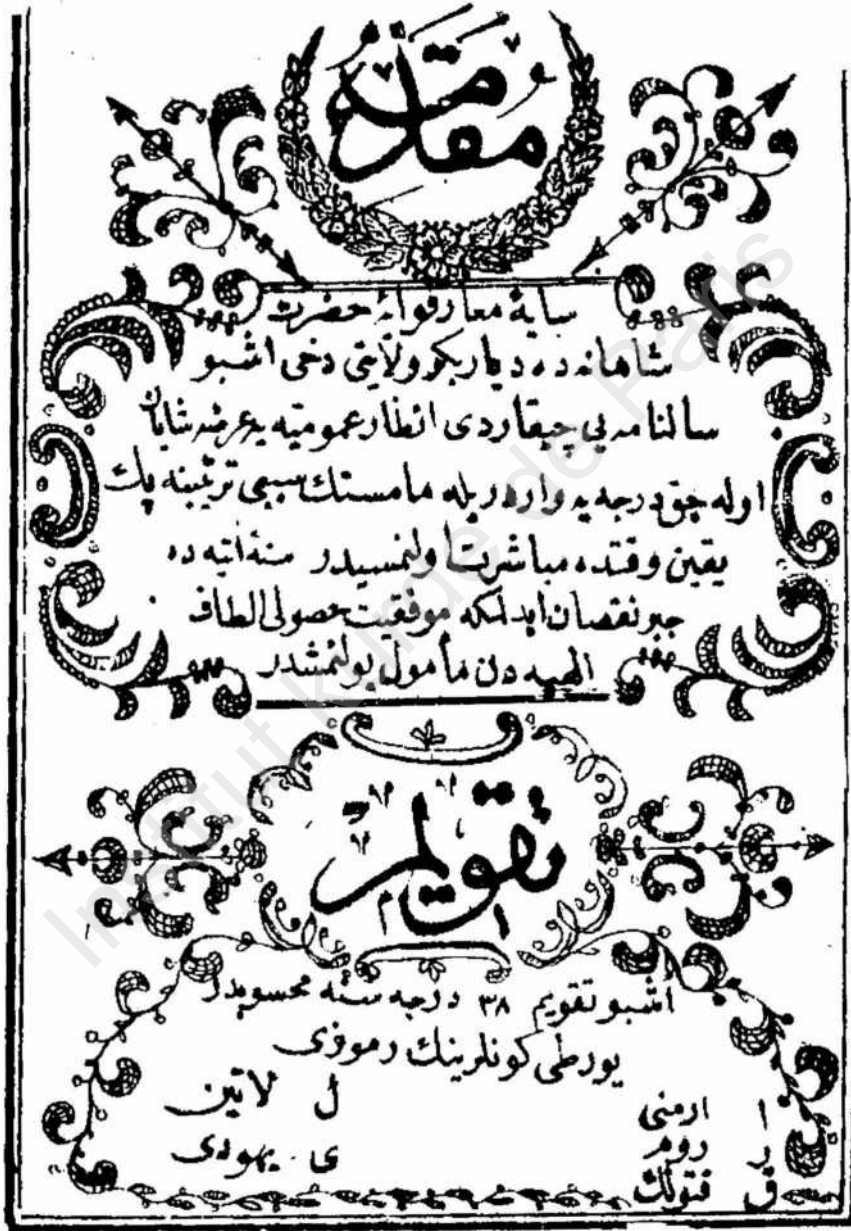 مقدمه
سايۀ معارفوايۀ حضرت
شاهانه ده دياربكر ولايتى دخى اشبو
سالنامه يى چيقاردى انظار عموميه يه عرضه شايان
اوله جق درجه يه وارديريله مامسنك سببى ترتيبنه پك
يقين وقتده مباشرت اولنمسيدر سنۀ آتيه ده
جبر نقصان ايدلمكه موفقيت حصولى الطاف
الهيه دن مأمول بولنمشدر
تقويم
اشبو تقويم ٣٨ درجه سنه محسوبدر
يورطى كونلرينك رموزى
ا ارمنى ل لاتين
ر روم ى يهودى
ق قتولك
Institut kurde de Paris